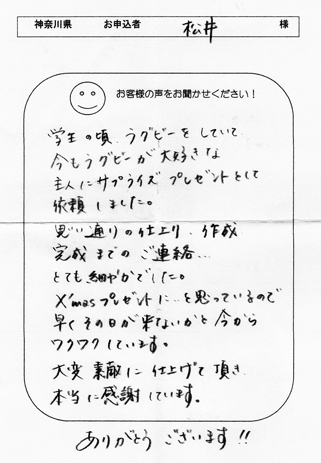 神奈川県 お申込者 松井 様
お客様の声をお聞かせください！
学生の頃、ラグビーをしていて、
今もラグビーが大好きな
主人にサプライズプレゼントとして
依頼しました。
思い通りの仕上り、作成
完成までのご連絡…
とても細やかでした。
X'masプレゼントに…と思っているので
早くその日が来ないかと今から
ワクワクしています。
大変素敵に仕上げて頂き
本当に感謝しています。
ありがとうございます!!